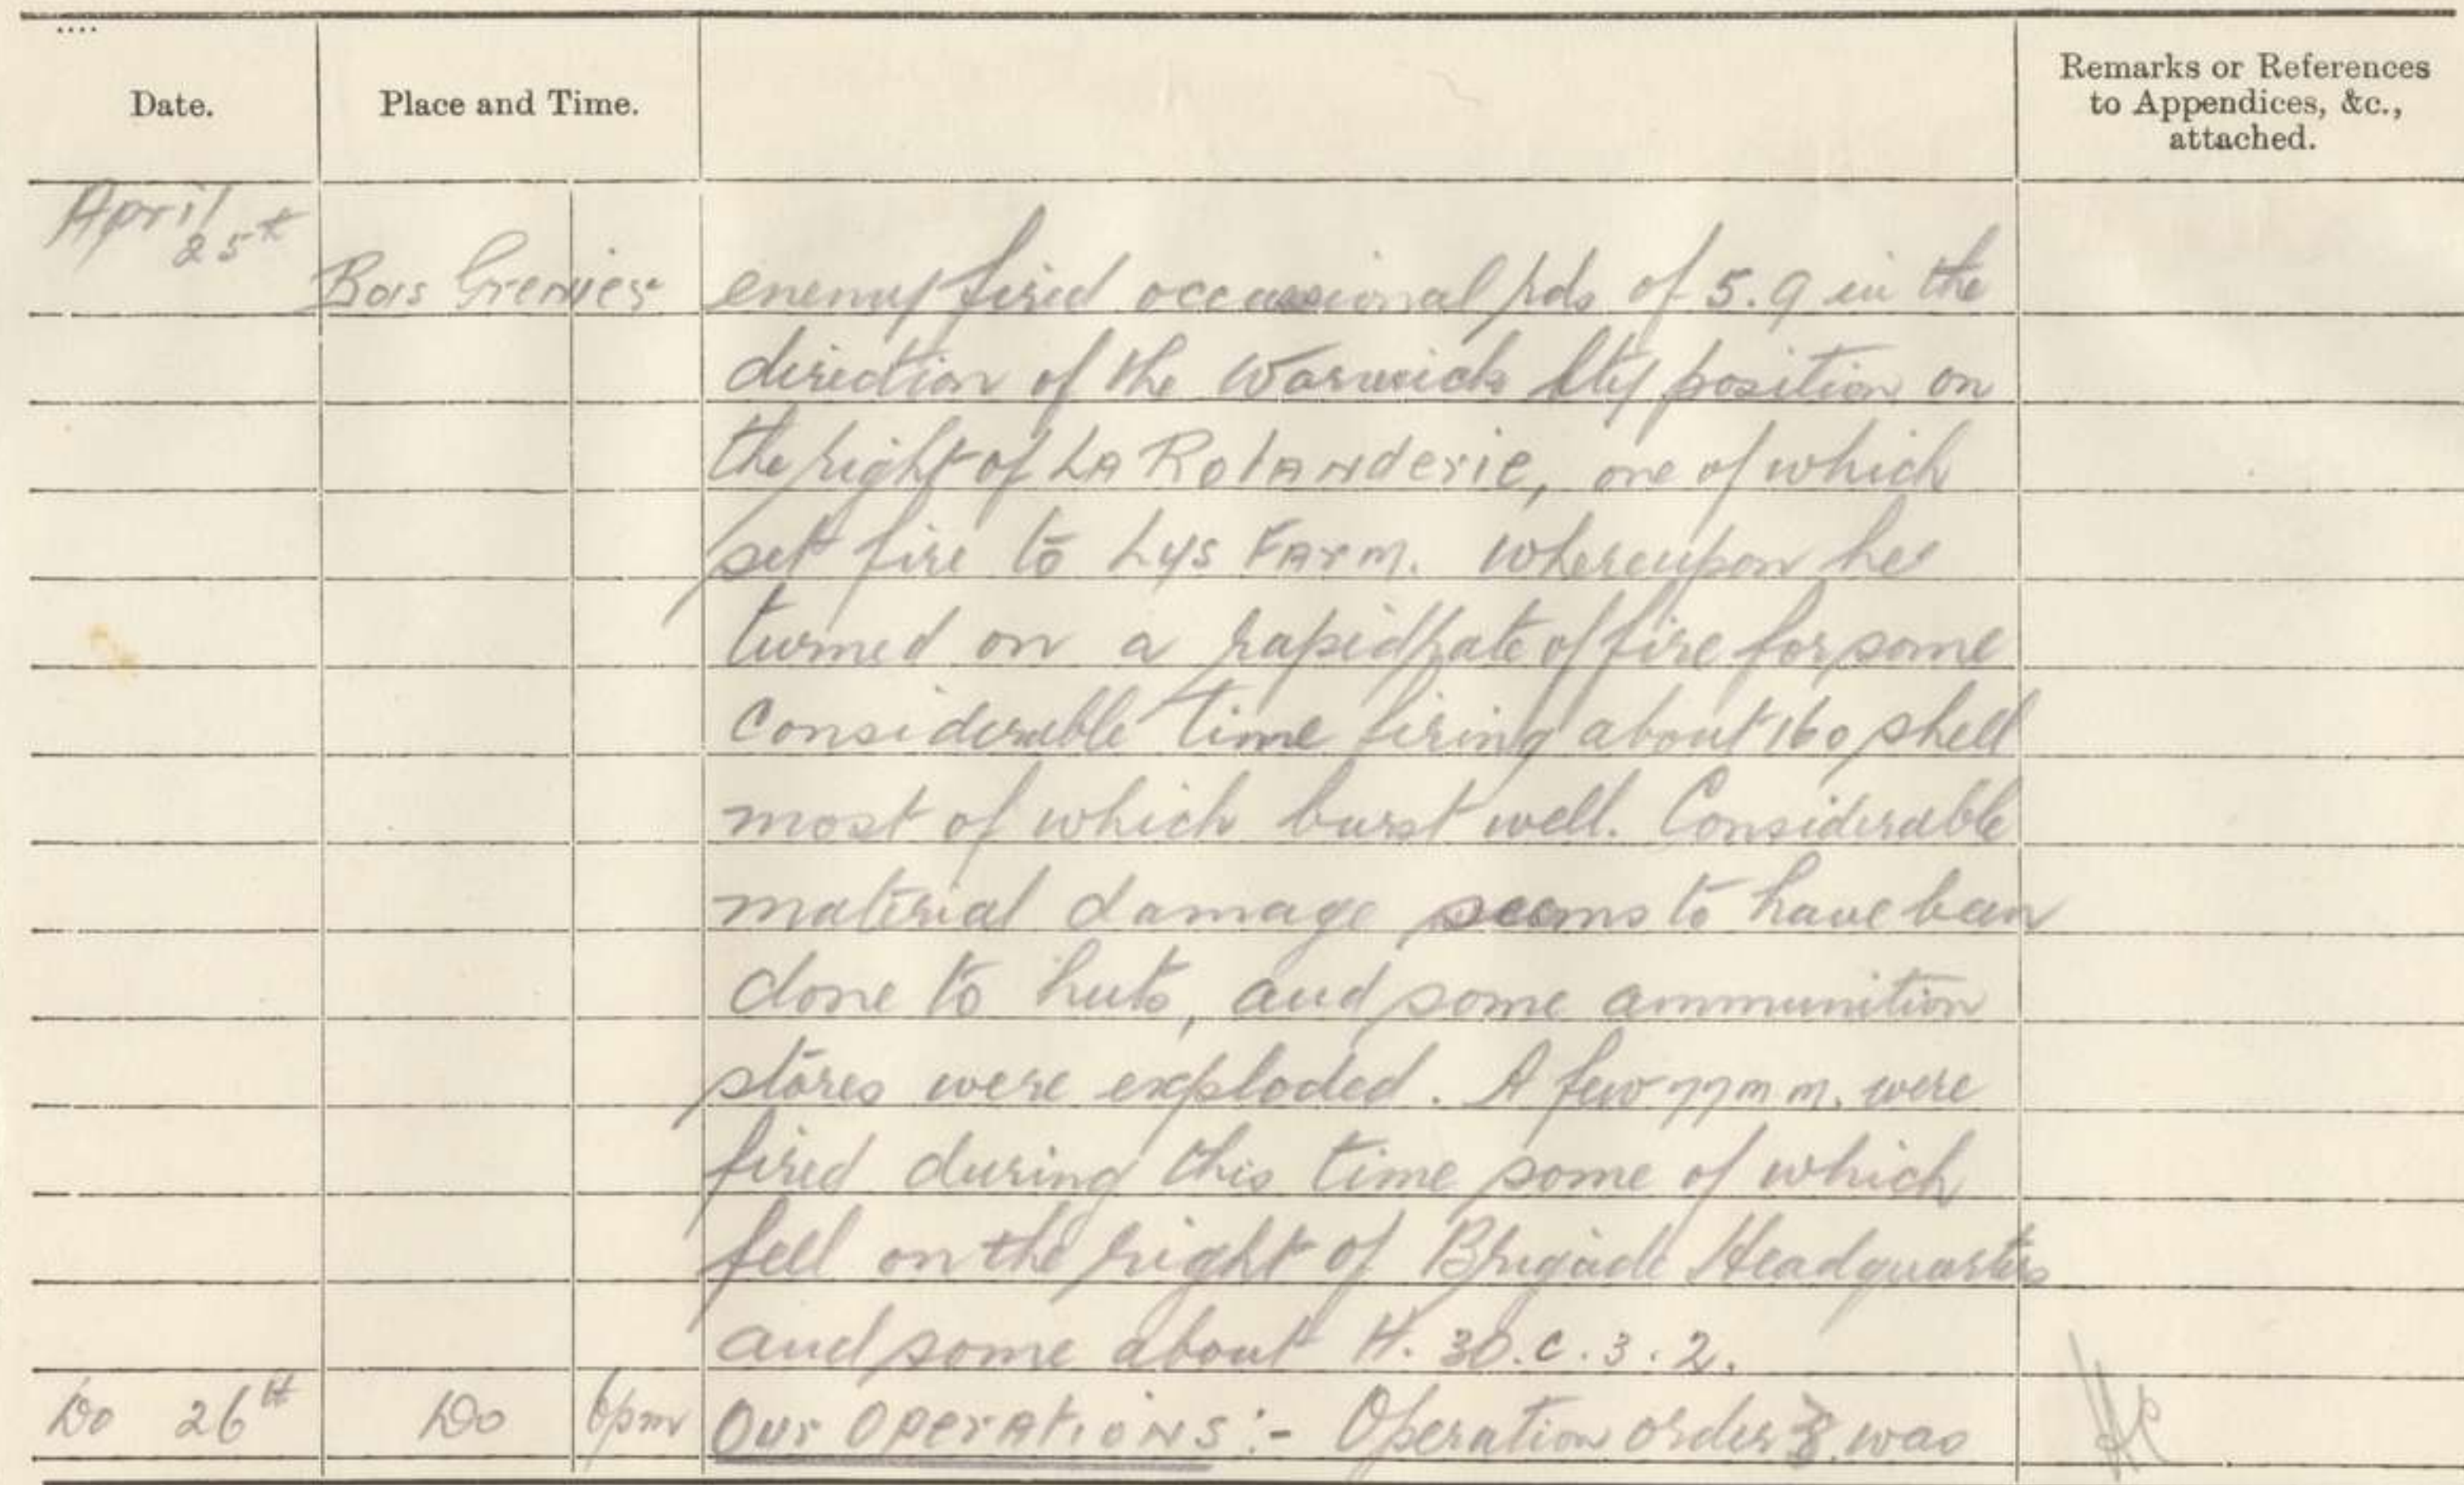 Date.
Place and Time.
Remarks or References
to Appendices, &c.,
attached.
April
25th
Bois Grenier
enemy fired occasional rds of 5.9 in the
direction of the Warwick bty position on
the right of LA RolANderie, one of which
set fire to Lys FArm. whereupon he
turned on a rapid rate of fire for some
Considerable time firing about 160 shell
most of which burst well. Considerable
material damage seems to have been
done to huts, and some ammunition
stores were exploded. A few 77 m m. were
fired during this time some of which
fell on the right of Brigade Headquarters
and some about H. 30. c. 3. 2.
Do 26th Do 6pm Our OperAtioNs :- Operation order 8 was